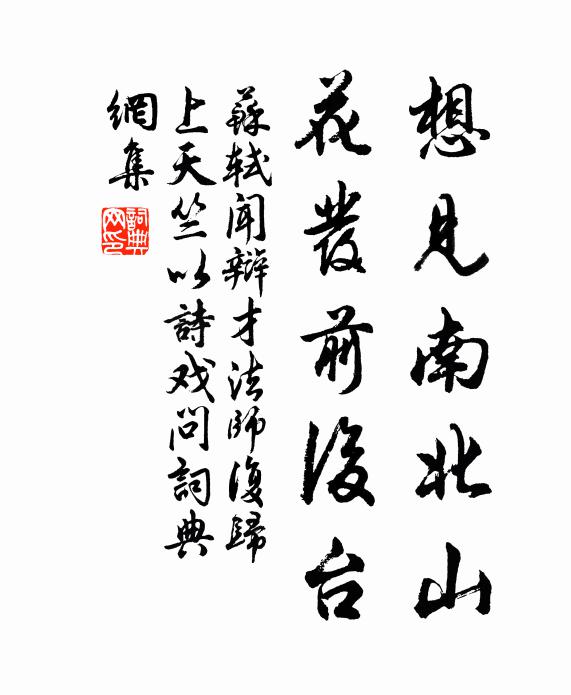 想見南北山
花發前後台
蘇軾聞辯才法師復歸
上天竺以詩戏問詞典
網集
詞典
网印